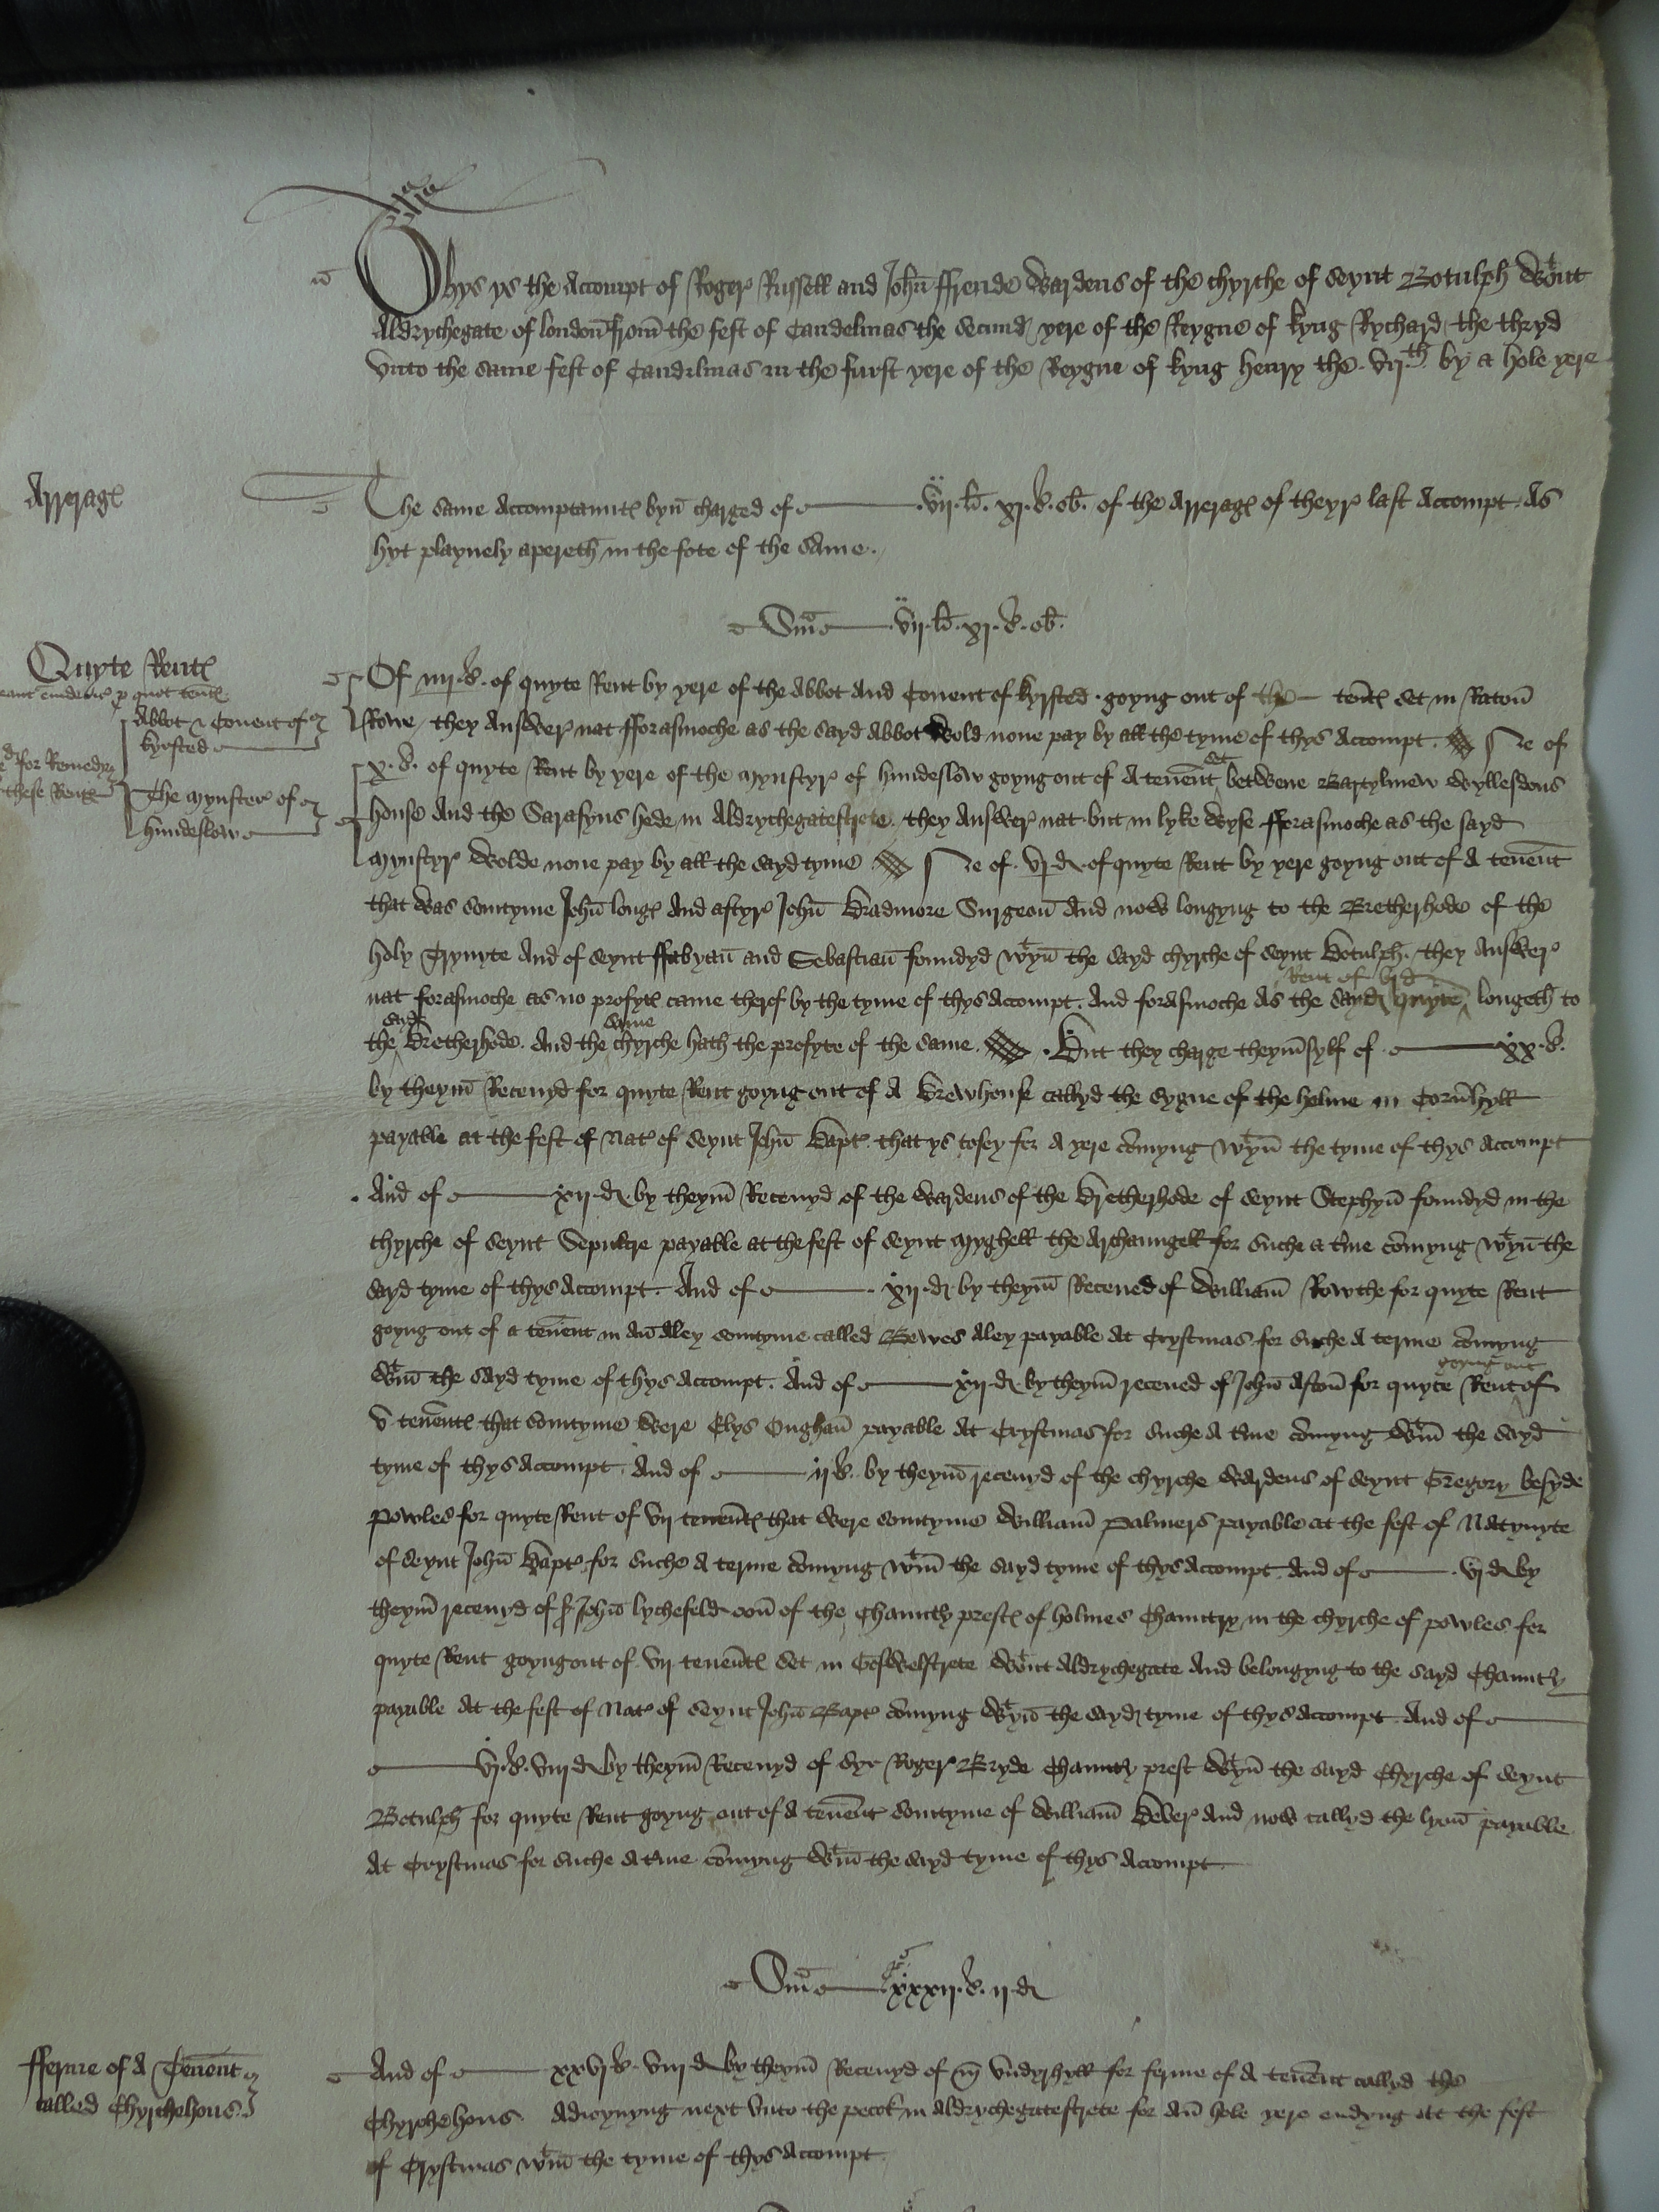 Thys ys the Accompt of Roger Russell and John ffrende Wardens of the chyrche of Seynt Botulph Wtout
Aldrychegate of london from the fest of Candelmas the Secund yere of the Reygne of kyng Rychard the thryd
Vnto the same fest of Candilmas in the furst yere of the Reygne of kyng henry the .vij.th by a hole yere
Arrerages
The same Accomptauntes byn charged of .vij.li. xj.s. ob. of the Arrerages of theyr last Accompt As
hyt playnely apereth in the fote of the same.
Sma .vij.li. xj.s. ob.
Quyte Rentes
Of iiij.s. of quyte Rent by yere of the Abbot And Couent of kyrsted goyng out of the tentes set in Raton
Abbot & Couent of kyrsted
Rowe they Answer nat fforasmoche as the sayd Abbot Wold none pay by all the tyme of thys Accompt. Ne of
for Remedy
x.s. of quyte Rent by yere of the Mynstyr of hundeslow goyng out of A tenent set betwene Bartylmew Wyllesdons
these Rentes
The Mynster of hundeslow
house And the Sarasyns hede in Aldrychegatestrete. they Answer nat but in lyke Wyse fforasmoche as the sayd
Mynstyr Wolde none pay by all the sayd tyme Ne of vj.d of quyte Rent by yere goyng out of A tenent
that Was somtyme John longe And aftyr John Bradmore Surgeon And now longyng to the Bretherhode of the
holy Trynyte And of Seynt ffabyan and Sebastian foundyd wtyn the sayd chyrche of Seynt Botulph. they Answer
nat forasmoche as no profyte came therof by the tyme of thys Accompt. And forasmoche As the sayd quyte Rent of vj d longeth to
the sayd Bretherhode. And the same chyrche hath the profyte of the same. But they charge theym sylf of xx.s.
by theym Receuyd for quyte Rent goyng out of A Brewhouse callyd the sygne of the helme in Cornhyll
payable at the fest of Nat of Seynt John Bapt. that ys to sey for A yere comyng wtyn the tyme of thys Accompt
And of xij.d by theym Receuyd of the Wardens of the Bretherhode of Seynt Stephyn foundyd in the
chyrche of Seynt Sepulcre payable at the fest of Seynt Myghell the Archaungell for suche a tme comyng wtyn the
sayd tyme of thys Accompt. And of xij.d. by theym Receued of William Rowthe for quyte Rent
goyng out of a tenent in An Aley somtyme called Bewes Aley payable At Crystmas for suche A terme comyng
Wtin the sayd tyme of thys Accompt. And of xij.d. by theym receued of John Aston for quyte Rent goyng out of
v tenentes that somtyme Were Elys Oughan payable At Crystmas for suche A tme comyng Wtin the sayd
tyme of thys Accompt. And of ij.s. by theym receuyd of the chyrche Wardens of Seynt Gregory besyde
Powles for quyte Rent of vij tenentes that Were somtyme William Palmers payable at the fest of Natyuyte
of Seynt John Bapt. for suche A terme comyng wtin the sayd tyme of thys Accompt And of vj d by
theym receuyd of Sr John lychefeld oon of the Chauntry prestes of holmes Chauntry in the chyrche of powles for
quyte Rent goyng out of vij tenentes set in Goswelstrete Wtout Aldrychegate And belongyng to the sayd Chauntry
payable At the fest of Nat of Seynt John Bapt comyng Wtyn the sayd tyme of thys Accompt. And of
vj.s. viij d by theym Receuyd of Syr Roger Bryde Chauntry prest Wtyn the sayd Chyrche of Seynt
Botulph for quyte Rent goyng out of A tenent somtyme of William Bever And now callyd the lyon payable
At Crystmas for suche A tme comyng Wtin the sayd tyme of thys Accompt
Sma xxxij.s. ij.d
fferme of A Tenent
called Chyrchehous
And of xxvj s. viij d by theym Receuyd of Vndyrhyll for ferme of A tenent callyd the
Chyrchehous Adioynyng next Vnto the pecok in Aldrychegatestrete for An hole yere endyng At the fest
of Crystmas wtin the tyme of thys Accompt